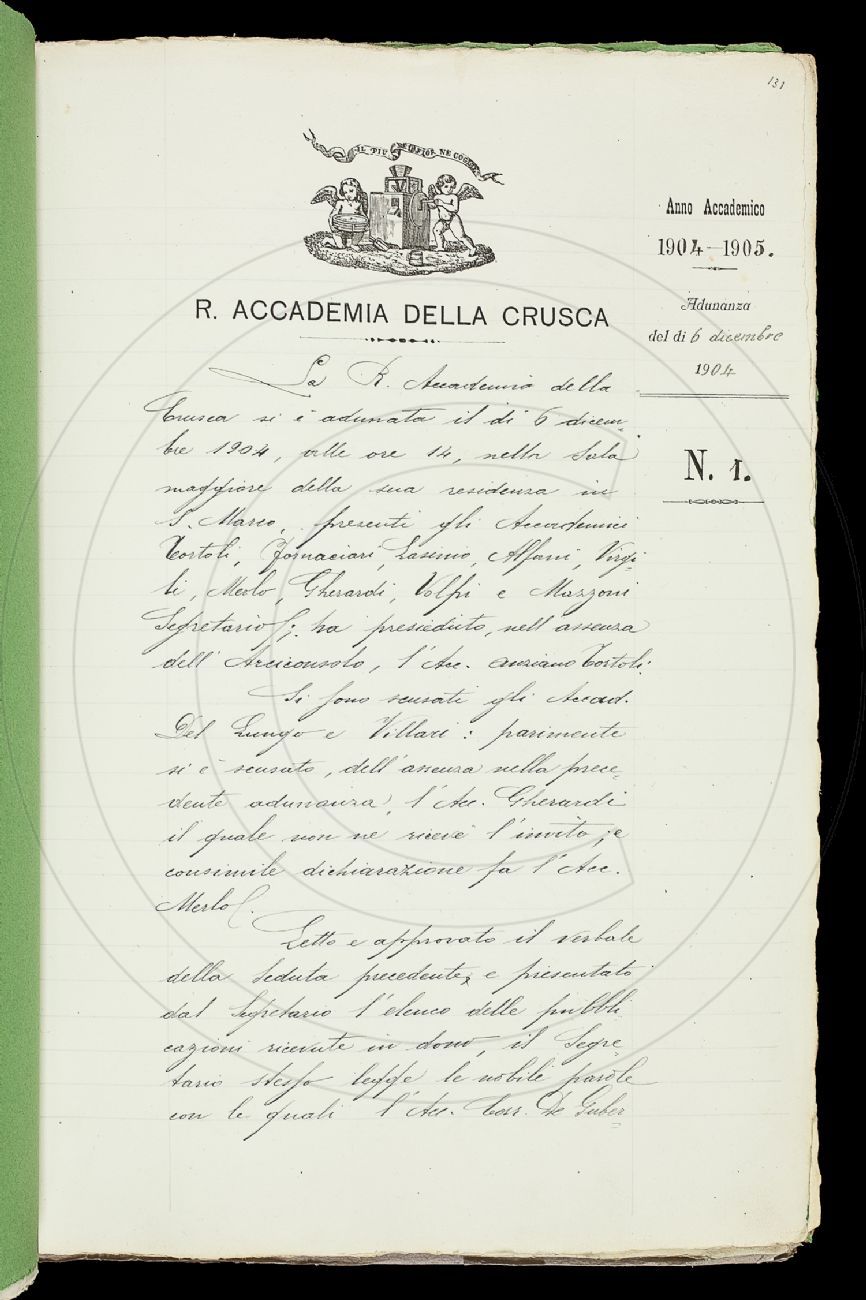 131
IL PIÙ BEL FIOR NE COGLIE
Anno Accademico
1904-1905.
Adunanza
del dì 6 dicembre
1904
N. 1.
R. ACCADEMIA DELLA CRUSCA
La R. Accademia della
Crusca si è adunata il dì 6 dicem-
bre 1904, alle ore 14, nella Sala
maggiore della sua residenza in
S. Marco, presenti gli Accademici
Tortoli, Fornaciari, Lasinio, Alfani, Virgi-
li, Merlo, Gherardi, Volpi e Mazzoni
Segretario; ha presieduto, nell'assenza
dell'Arciconsolo, l'Acc. anziano Tortoli.
Si sono scusati gli Accad.
Del Lungo e Villari: parimente
si è scusato, dell'assenza nella prece-
dente adunanza, l'Acc. Gherardi
il quale non ne riceve l'invito; e
consimile dichiarazione fa l'Acc.
Merlo.
Letto e approvato il verbale
della seduta precedente, e presentato
dal Segretario l'elenco delle pubbli
cazioni ricevute in dono, il Segre-
tario stesso legge le nobili parole
con le quali l'Acc. Corr. De Guber-